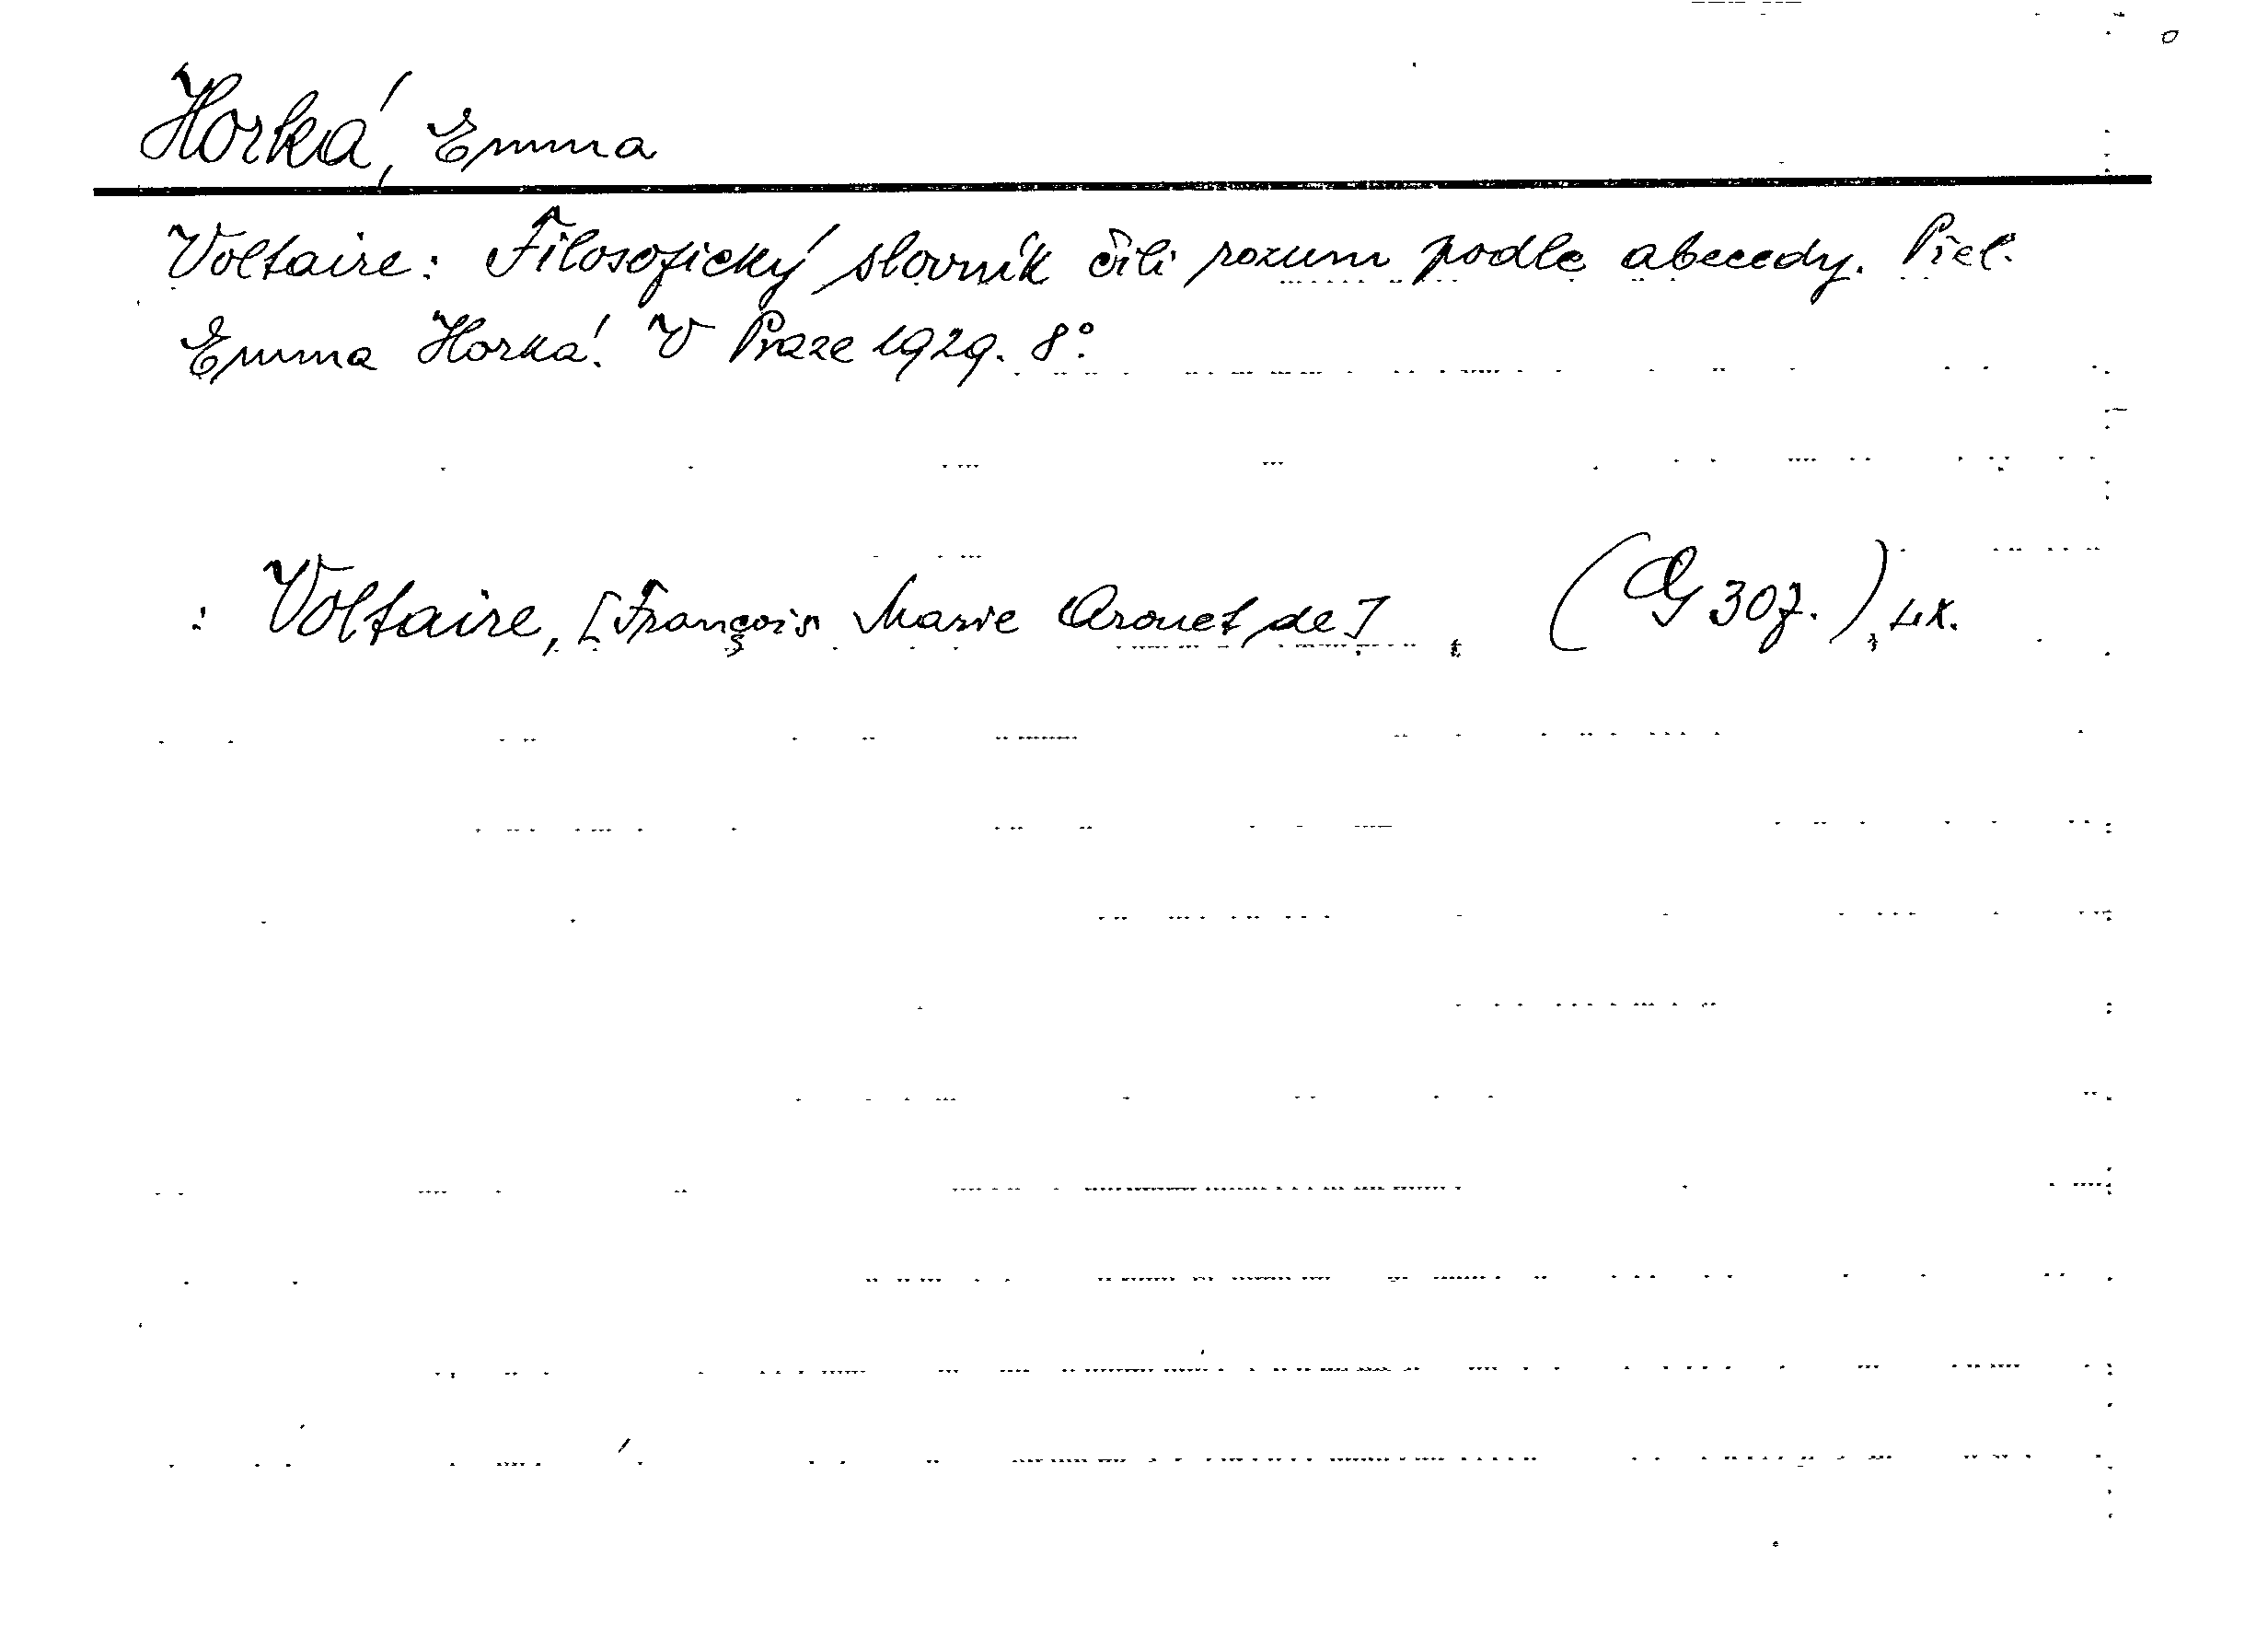 Horká, Emma
Voltaire: Filosofický slovník čili rozum podle abecedy. Přel.
Emma Horká. V Praze 1929. 8°.
: Voltaire, [François Marie Arouet de]. (G 307.), Lx.